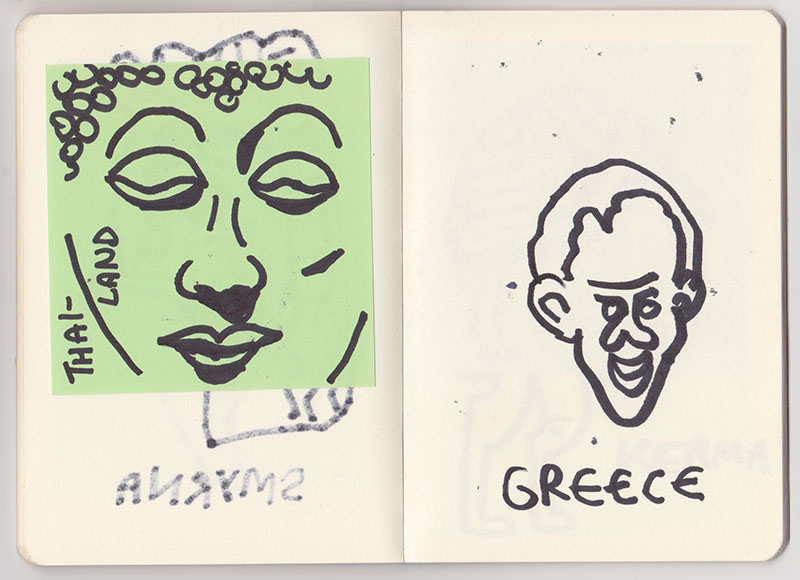 THAI-
LAND
SMYRNA
GREECE
KERMA